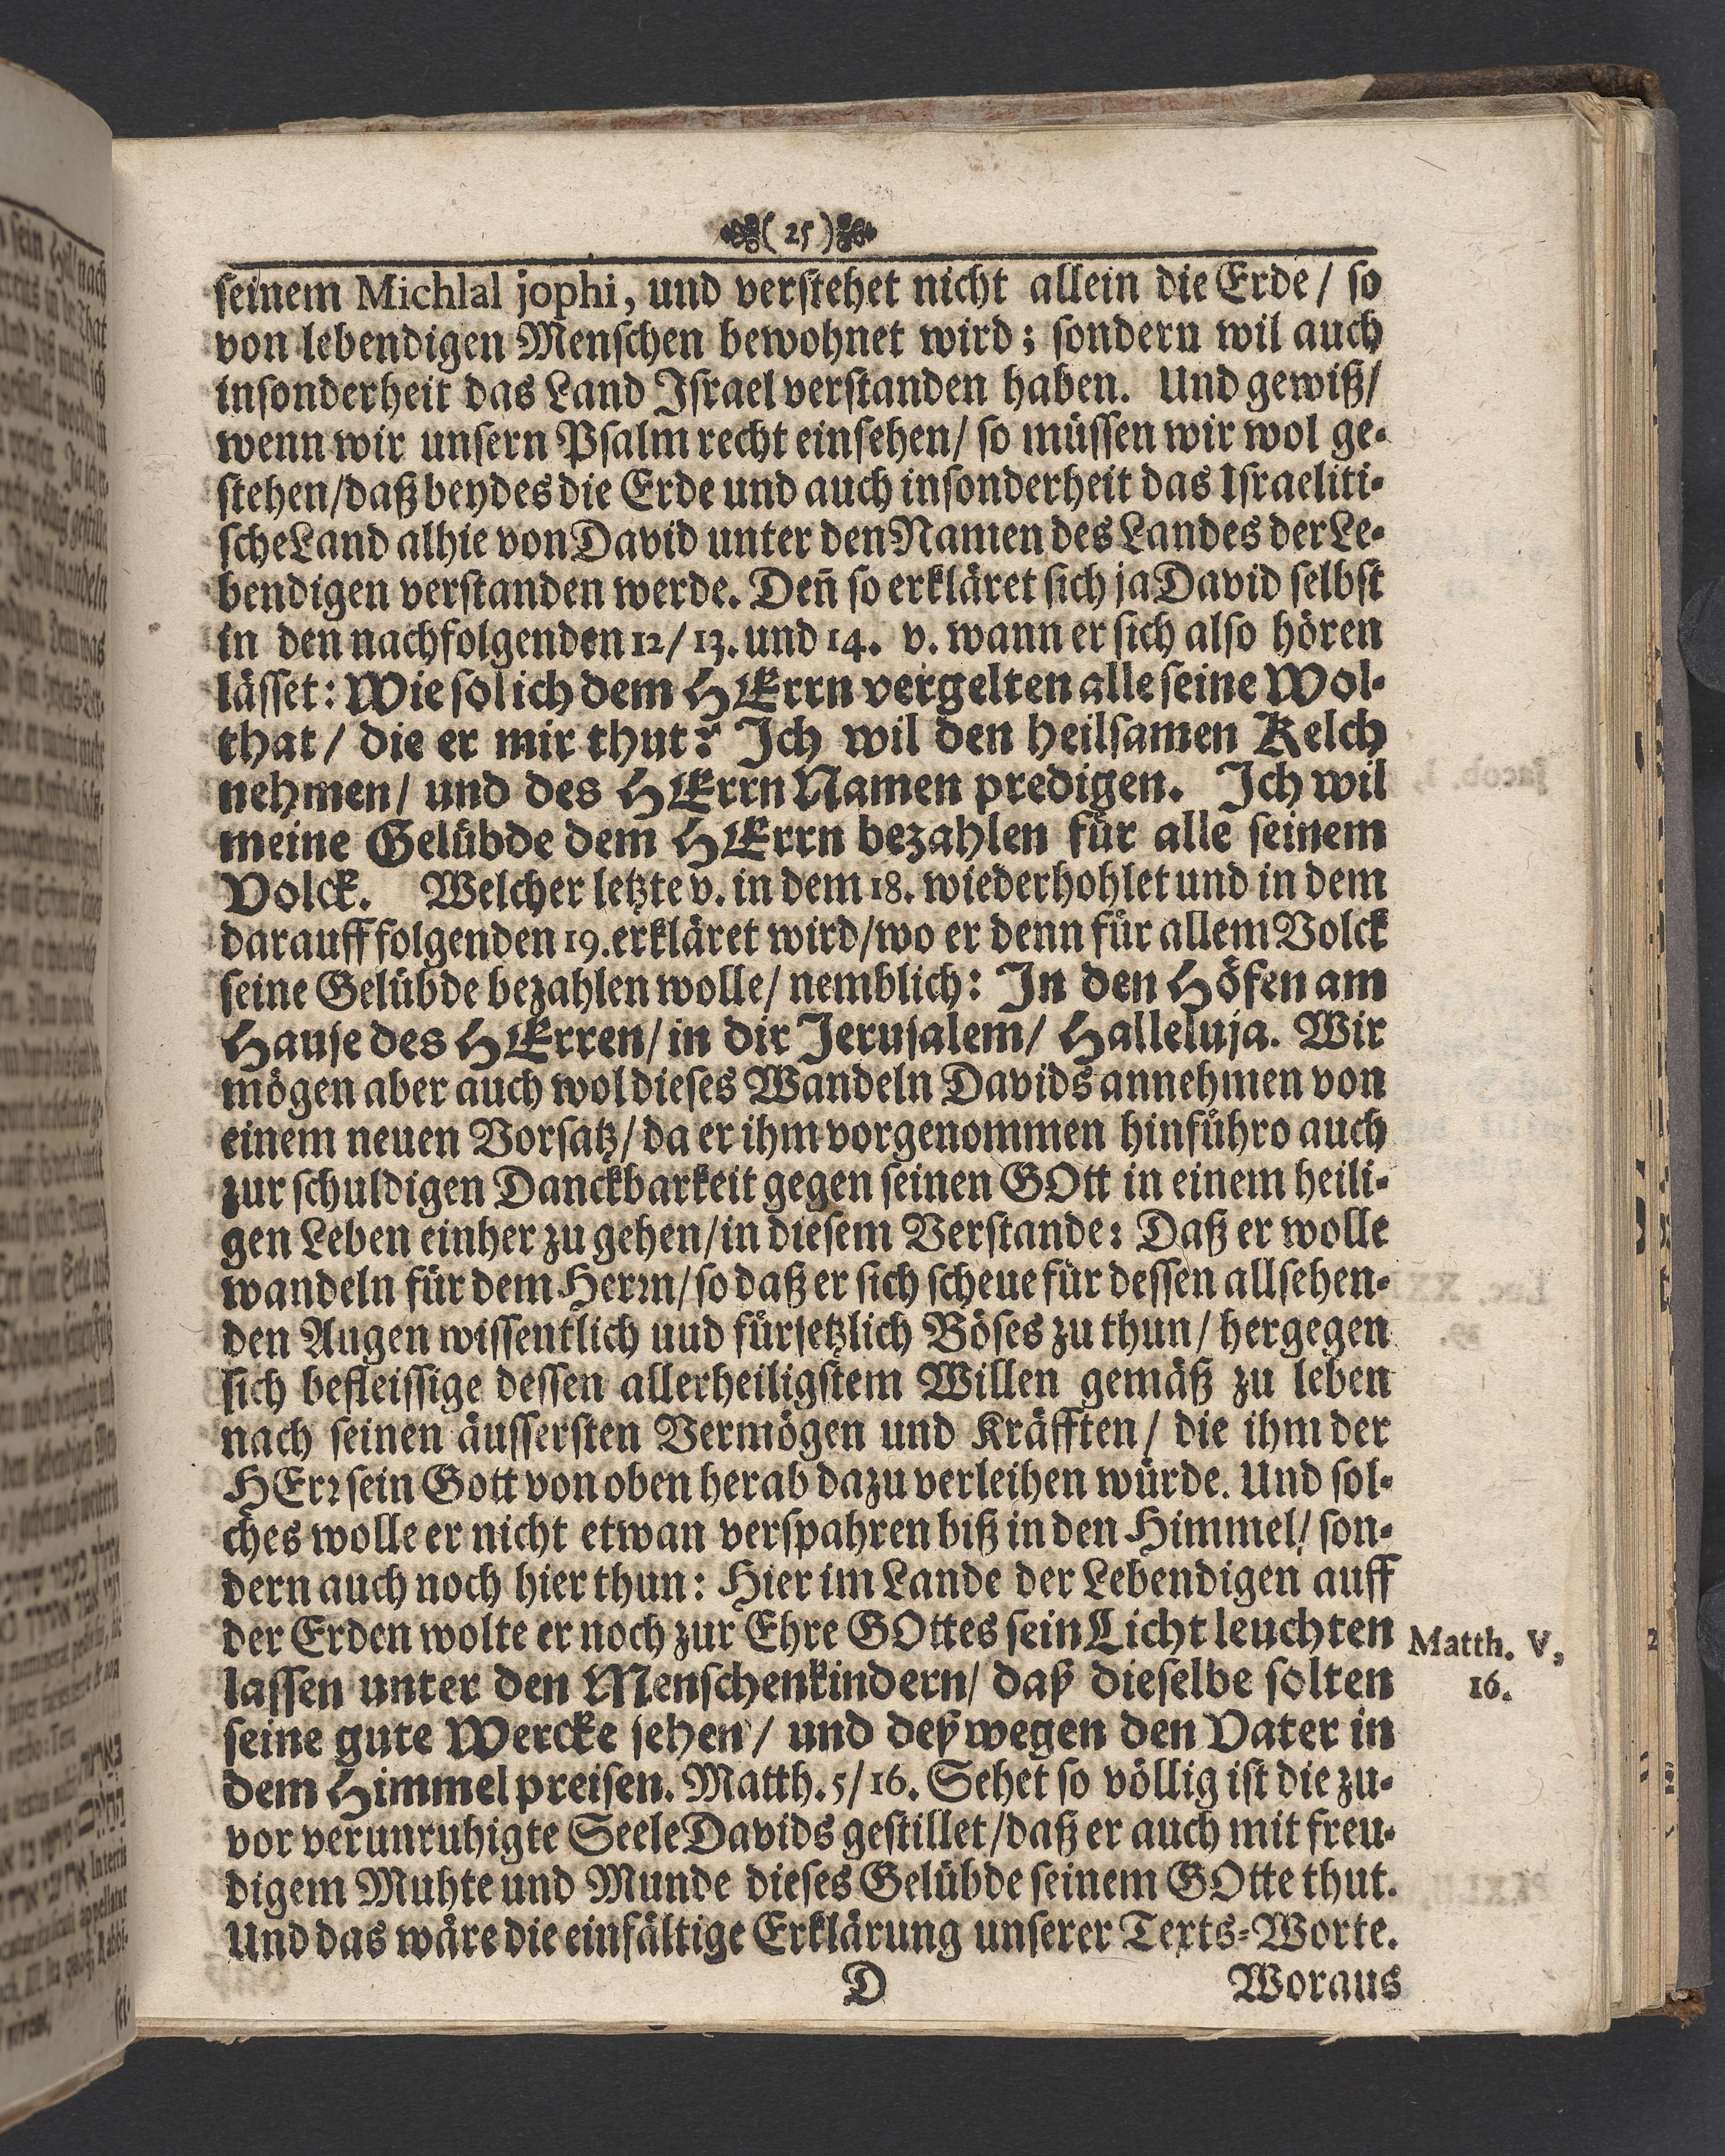 ( 25 )
ſeinem Michlal jophi, und verſtehet nicht allein die Erde / ſo
von lebendigen Menſchen bewohnet wird; ſondern wil auch
inſonderheit das Land Iſrael verſtanden haben. Und gewiß/
wenn wir unſern Pſalm recht einſehen/ ſo müſſen wir wol ge-
ſtehen/daß beydes die Erde und auch inſonderheit das Iſraeliti-
ſche Land alhie von David unter den Namen des Landes der Le-
bendigen verſtanden werde. Deñ ſo erkläret ſich ja David ſelbſt
in den nachfolgenden 12/ 13. und 14. v. wann er ſich alſo hören
läſſet: Wie ſol ich dem HErrn vergelten alle ſeine Wol-
that/ die er mir thut? Ich wil den heilſamen Kelch
nehmen/ und des HErrn Namen predigen. Ich wil
meine Gelübde dem HErrn bezahlen für alle ſeinem
Volck. Welcher letzte v. in dem 18. wiederhohlet und in dem
darauff folgenden 19. erkläret wird/wo er denn für allem Volck
ſeine Gelübde bezahlen wolle/ nemblich: In den Höfen am
Hauſe des HErren/ in dir Jeruſalem/ Halleluja. Wir
mögen aber auch wol dieſes Wandeln Davids annehmen von
einem neuen Vorſatz/ da er ihm vorgenommen hinführo auch
zur ſchuldigen Danckbarkeit gegen ſeinen GOtt in einem heili-
gen Leben einher zu gehen/in dieſem Verſtande: Daß er wolle
wandeln für dem Herꝛn/ ſo daß er ſich ſcheue für deſſen allſehen-
den Augen wiſſentlich uud fürſetzlich Böſes zu thun/ hergegen
ſich befleiſſige deſſen allerheiligſtem Willen gemäß zu leben
nach ſeinen äuſſerſten Vermögen und Kräfften/ die ihm der
HErꝛ ſein Gott von oben herab dazu verleihen würde. Und ſol-
ches wolle er nicht etwan verſpahren biß in den Himmel/ ſon-
dern auch noch hier thun: Hier im Lande der Lebendigen auff
der Erden wolte er noch zur Ehre GOttes ſein Licht leuchten
laſſen unter den Menſchenkindern/ daß dieſelbe ſolten
ſeine gute Wercke ſehen/ und deßwegen den Vater in
dem Himmel preiſen. Matth. 5/ 16. Sehet ſo völlig iſt die zu-
vor verunruhigte Seele Davids geſtillet/daß er auch mit freu-
digem Muhte und Munde dieſes Gelübde ſeinem GOtte thut.
Und das wäre die einfältige Erklärung unſerer Texts-Worte.
D Woraus
Matth. V,
16.